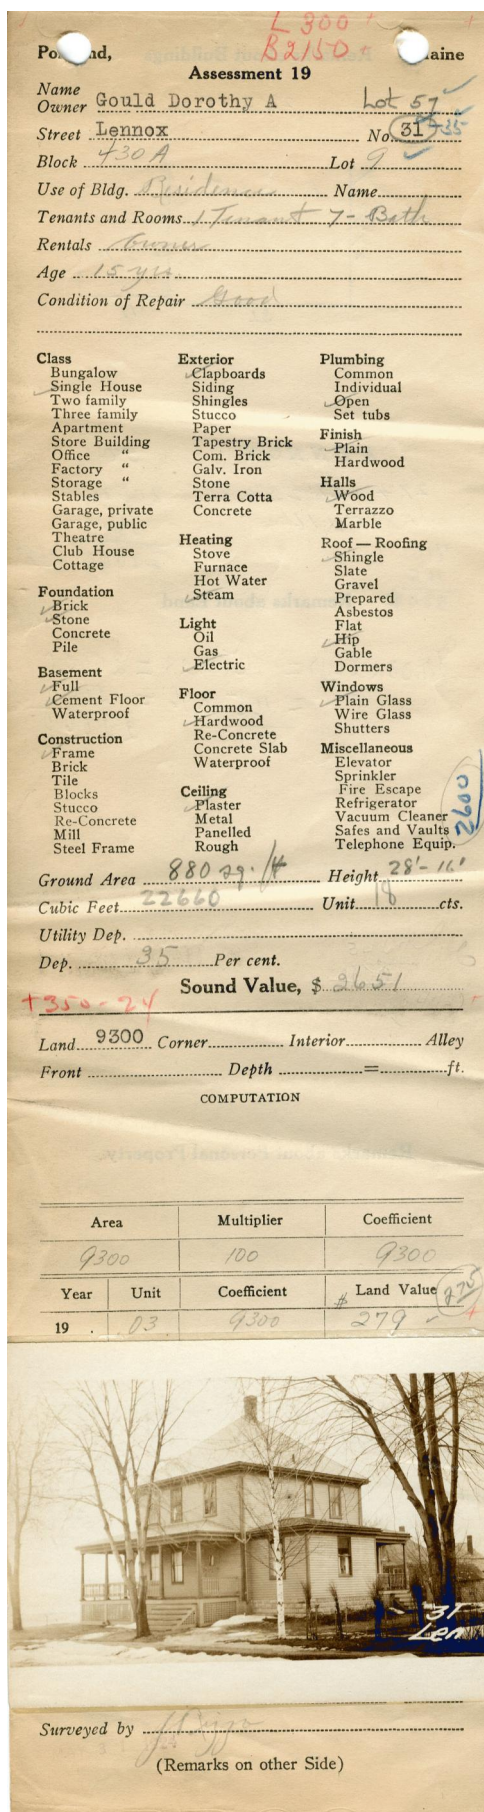 L 300
B 2150
Portland, Maine
Assessment 19
Name
Owner Gould Dorothy A Lot 57
Street Lennox No. 31-35
Block 430A Lot 9
Use of Bldg. Residence Name
Tenants and Rooms 1 Tenant 7 - Bath
Rentals Owner
Age 15 yrs
Condition of Repair Good
Class
Bungalow
Single House
Two family
Three family
Apartment
Store Building
Office "
Factory "
Storage "
Stables
Garage, private
Garage, public
Theatre
Club House
Cottage
Foundation
Brick
Stone
Concrete
Pile
Basement
Full
Cement Floor
Waterproof
Construction
Frame
Brick
Tile
Blocks
Stucco
Re-Concrete
Mill
Steel Frame
Exterior
Clapboards
Siding
Shingles
Stucco
Paper
Tapestry Brick
Com. Brick
Galv. Iron
Stone
Terra Cotta
Concrete
Heating
Stove
Furnace
Hot Water
Steam
Light
Oil
Gas
Electric
Floor
Common
Hardwood
Re-Concrete
Concrete Slab
Waterproof
Ceiling
Plaster
Metal
Panelled
Rough
Plumbing
Common
Individual
Open
Set tubs
Finish
Plain
Hardwood
Halls
Wood
Terrazzo
Marble
Roof — Roofing
Shingle
Slate
Gravel
Prepared
Asbestos
Flat
Hip
Gable
Dormers
Windows
Plain Glass
Wire Glass
Shutters
Miscellaneous
Elevator
Sprinkler
Fire Escape
Refrigerator
Vacuum Cleaner
Safes and Vaults
Telephone Equip.
2600
Ground Area 880 sq. ft Height 28'- 16'
Cubic Feet 22660 Unit 18 cts.
Utility Dep.
Dep. 35 Per cent.
Sound Value, $ 2651
+350-24
Land 9300 Corner Interior Alley
Front Depth = ft.
COMPUTATION
Area Multiplier Coefficient
9300 100 9300
Year Unit Coefficient $ Land Value 275
19 . .03 9300 279 -
31
Len
Surveyed by
(Remarks on other Side)